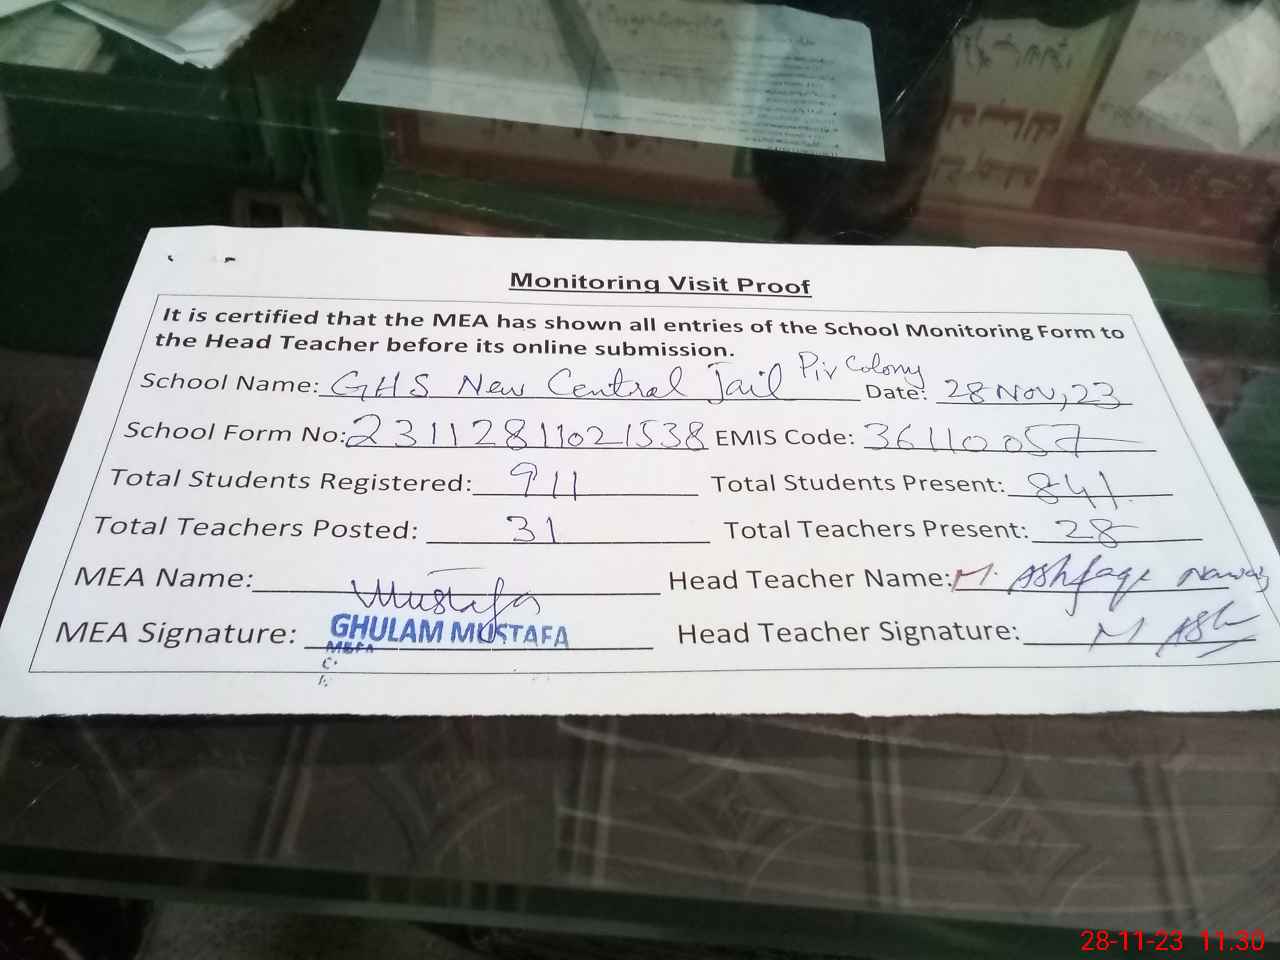 Monitoring Visit Proof
It is certified that the MEA has shown all entries of the School Monitoring Form to
the Head Teacher before its online submission.
School Name: GHS New Central Jail Pir Colony Date: 28 Nov, 23
School Form No: 23112811021538 EMIS Code: 36110057
Total Students Registered: 911 Total Students Present: 841
Total Teachers Posted: 31 Total Teachers Present: 28
MEA Name: Mustafa Head Teacher Name: M. Ashfaqe Nawaz
MEA Signature: GHULAM MUSTAFA Head Teacher Signature: M Ash
28-11-23 11.30